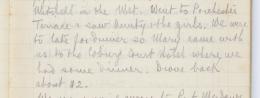 Mitchell in the West. Went to Porchester
Terrace & saw Aunty & the girls. We were
to late for dinner so Mary came with
us to the Coburg Court Hotel where we
had some dinner. Drove back
about 12.